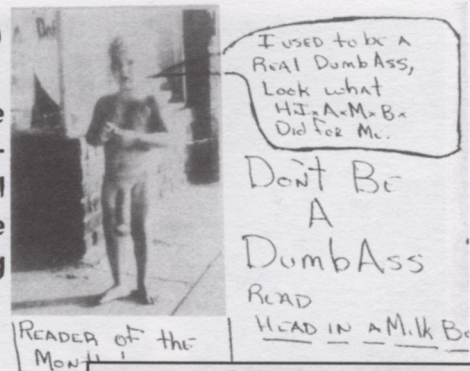 I used to be a
Real DumbAss,
Look what
H×I×A×M×B×
Did for Me.
Don't Be
A
DumbAss
READ
HEAD IN A Milk
READER of the